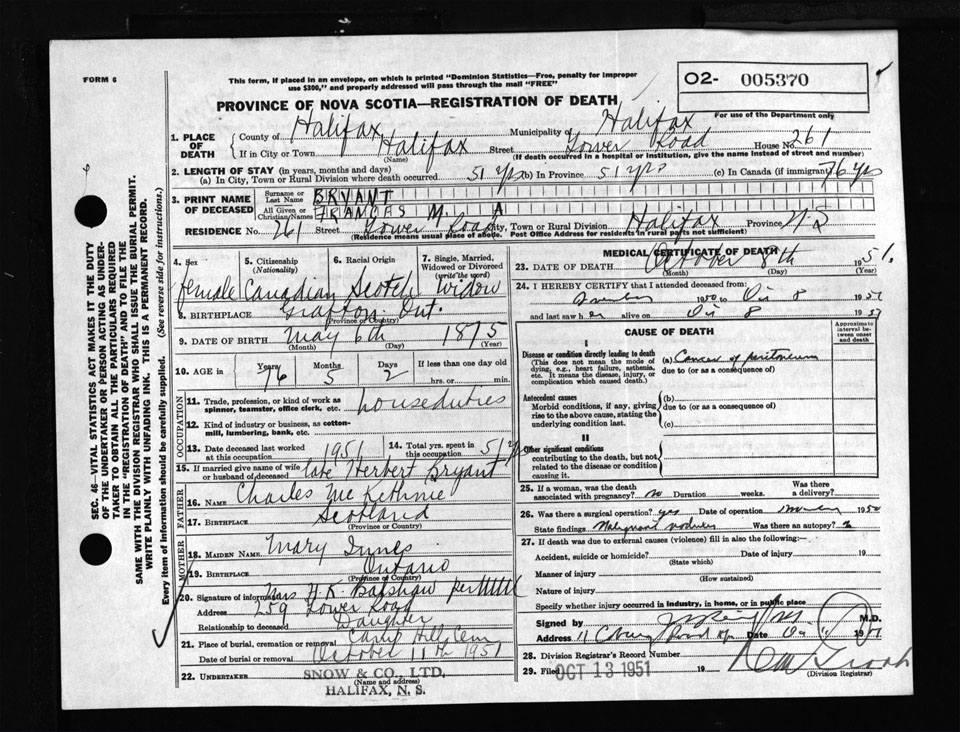 FORM 6
This form, if placed in an envelope, on which is printed "Dominion Statistics—Free, penalty for improper
use $300," and properly addressed will pass through the mail "FREE"
O2- 005370
For use of the Department only
PROVINCE OF NOVA SCOTIA—REGISTRATION OF DEATH
1. PLACE OF DEATH County of Halifax Municipality of Halifax
If in City or Town Halifax (Name) Street Tower Road House No. 261
(If death occurred in a hospital or institution, give the name instead of street and number)
2. LENGTH OF STAY (in years, months and days)
(a) In City, Town or Rural Division where death occurred 51 yrs (b) In Province 51 yrs (c) In Canada (if immigrant) 76 yrs
3. PRINT NAME OF DECEASED Surname or Last Name BRYANT
All Given or Christian Names FRANCES M. A
RESIDENCE No. 261 Street Tower Road City, Town or Rural Division Halifax Province N.S
(Residence means usual place of abode. Post Office Address for residents in rural parts not sufficient)
4. Sex 5. Citizenship (Nationality) 6. Racial Origin 7. Single, Married, Widowed or Divorced (write the word)
female Canadian Scotch Widow
8. BIRTHPLACE Grafton Ont.
(Province or Country)
9. DATE OF BIRTH May 6th 1875
(Month) (Day) (Year)
10. AGE IN Years 76 Months 5 Days 2 If less than one day old
hrs. or min.
OCCUPATION
11. Trade, profession, or kind of work as
spinner, teamster, office clerk, etc. housduties
12. Kind of industry or business, as cotton-
mill, lumbering, bank, etc.
13. Date deceased last worked at this occupation 1951 14. Total yrs. spent in this occupation 51 yrs
15. If married give name of wife or husband of deceased late Herbert Bryant
FATHER
16. NAME Charles McKethnie
17. BIRTHPLACE Scotland
(Province or Country)
MOTHER
18. MAIDEN NAME Mary Innes
19. BIRTHPLACE Ontario
(Province or Country)
20. Signature of informant Mrs H. R. Banshaw per
Address 259 Tower Road
Relationship to deceased Daughter
21. Place of burial, cremation or removal Camp Hill Cem
Date of burial or removal October 11th 1951
22. UNDERTAKER SNOW & CO., LTD.
HALIFAX, N. S.
MEDICAL CERTIFICATE OF DEATH
23. DATE OF DEATH October 8th 1951.
(Month) (Day) (Year)
24. I HEREBY CERTIFY that I attended deceased from
1950 to Oct 8 1951
and last saw her alive on Oct 8 1951
CAUSE OF DEATH
Approximate interval between onset and death
I
Disease or condition directly leading to death
(This does not mean the mode of dying, e.g., heart failure, asthenia, etc. It means the disease, injury, or complication which caused death.)
(a) Cancer of peritoneum
due to (or as a consequence of)
Antecedent causes
Morbid conditions, if any, giving rise to the above cause, stating the underlying condition last.
(b)
due to (or as a consequence of)
(c)
II
Other significant conditions
contributing to the death, but not related to the disease or condition causing it.
25. If a woman, was the death associated with pregnancy? no Duration weeks. Was there a delivery?
26. Was there surgical operation? yes Date of operation 1950
State findings Malignant nodules Was there an autopsy? no
27. If death was due to external causes (violence) fill in also the following:—
Accident, suicide or homicide? Date of injury 19
(State which)
Manner of injury
(How sustained)
Nature of injury
Specify whether injury occurred in industry, in home, or in public place
Signed by M.D.
Address 11 Coburg Road Date Oct 1951
28. Division Registrar's Record Number
29. Filed OCT 13 1951 19
(Division Registrar)
SEC. 46—VITAL STATISTICS ACT MAKES IT THE DUTY
OF THE UNDERTAKER OR PERSON ACTING AS UNDER-
TAKER TO OBTAIN ALL THE PARTICULARS REQUIRED
IN THE "REGISTRATION OF DEATH" AND TO FILE THE
SAME WITH THE DIVISION REGISTRAR WHO SHALL ISSUE THE BURIAL PERMIT.
WRITE PLAINLY WITH UNFADING INK. THIS IS A PERMANENT RECORD.
Every item of information should be carefully supplied. (See reverse side for instructions.)